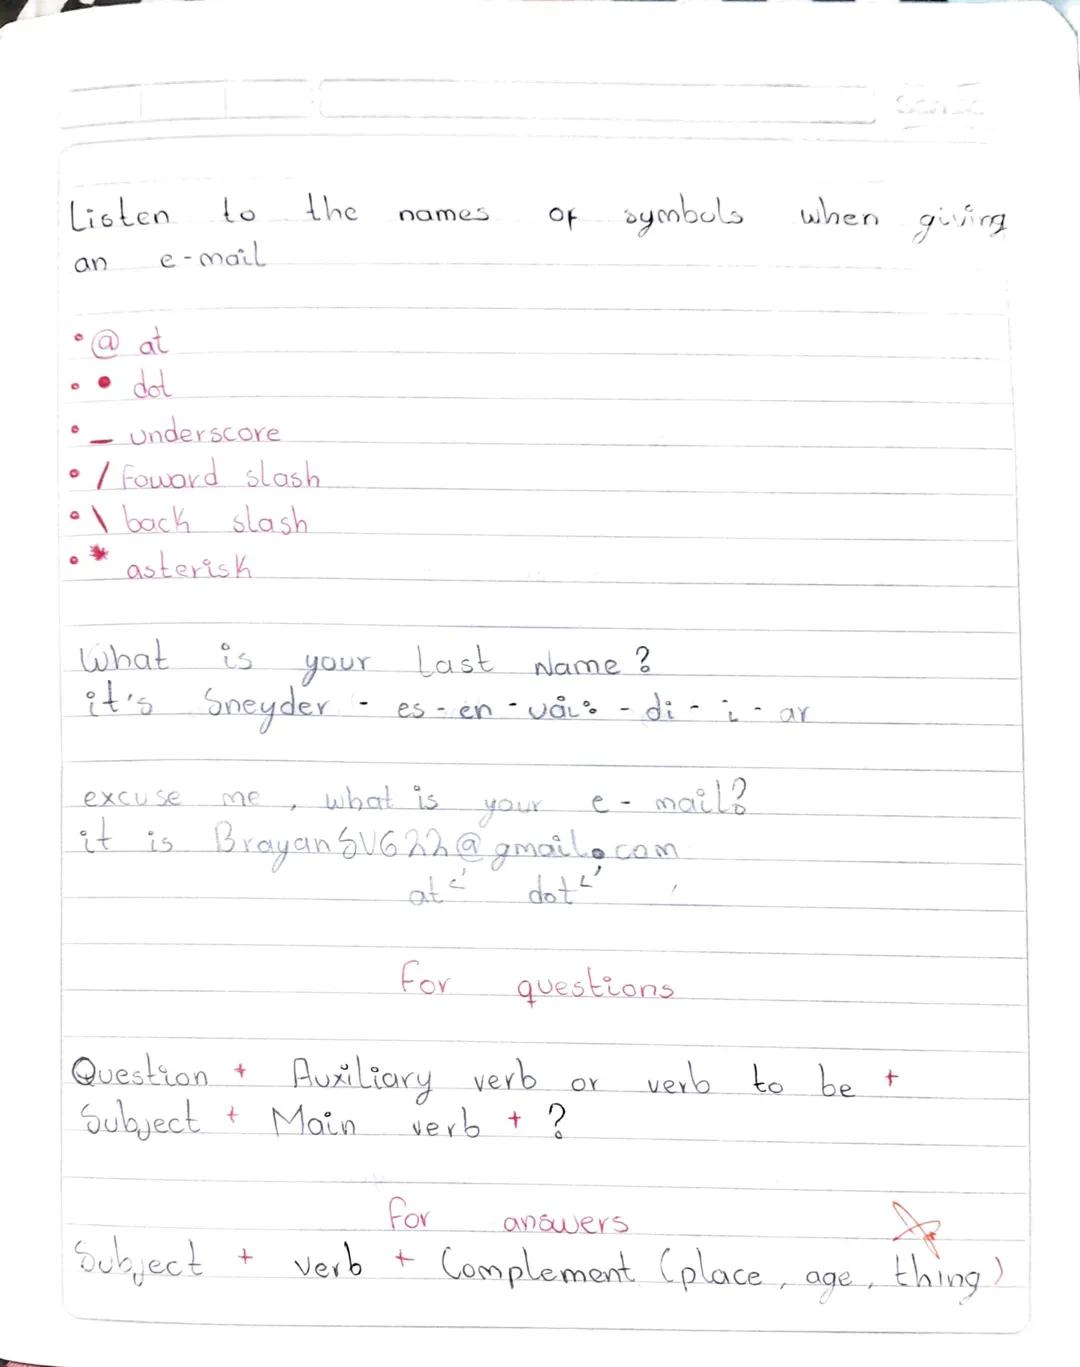 Listen to the names of symbols when giving
an e-mail
• @ at
• • dot
• _ underscore
• / Foward slash
• \ back slash
• * asterisk
What is your Last Name?
it's Sneyder - es - en - uái: - di - i - ar
excuse me, what is your e-mail?
it is BrayanSVG22@gmail.com
at dot
For questions
Question + Auxiliary verb or verb to be +
Subject + Main verb + ?
For answers
Subject + verb + Complement (place, age, thing)